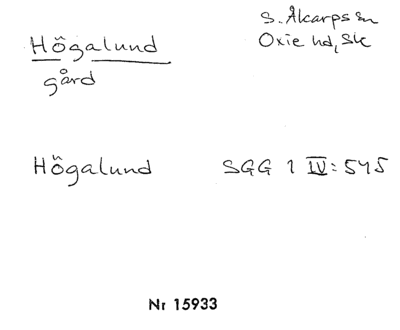 Högalund
gård
S. Åkarps sn
Oxie hd, Sk
Högalund SGG 1 IV: 545
Nr 15933